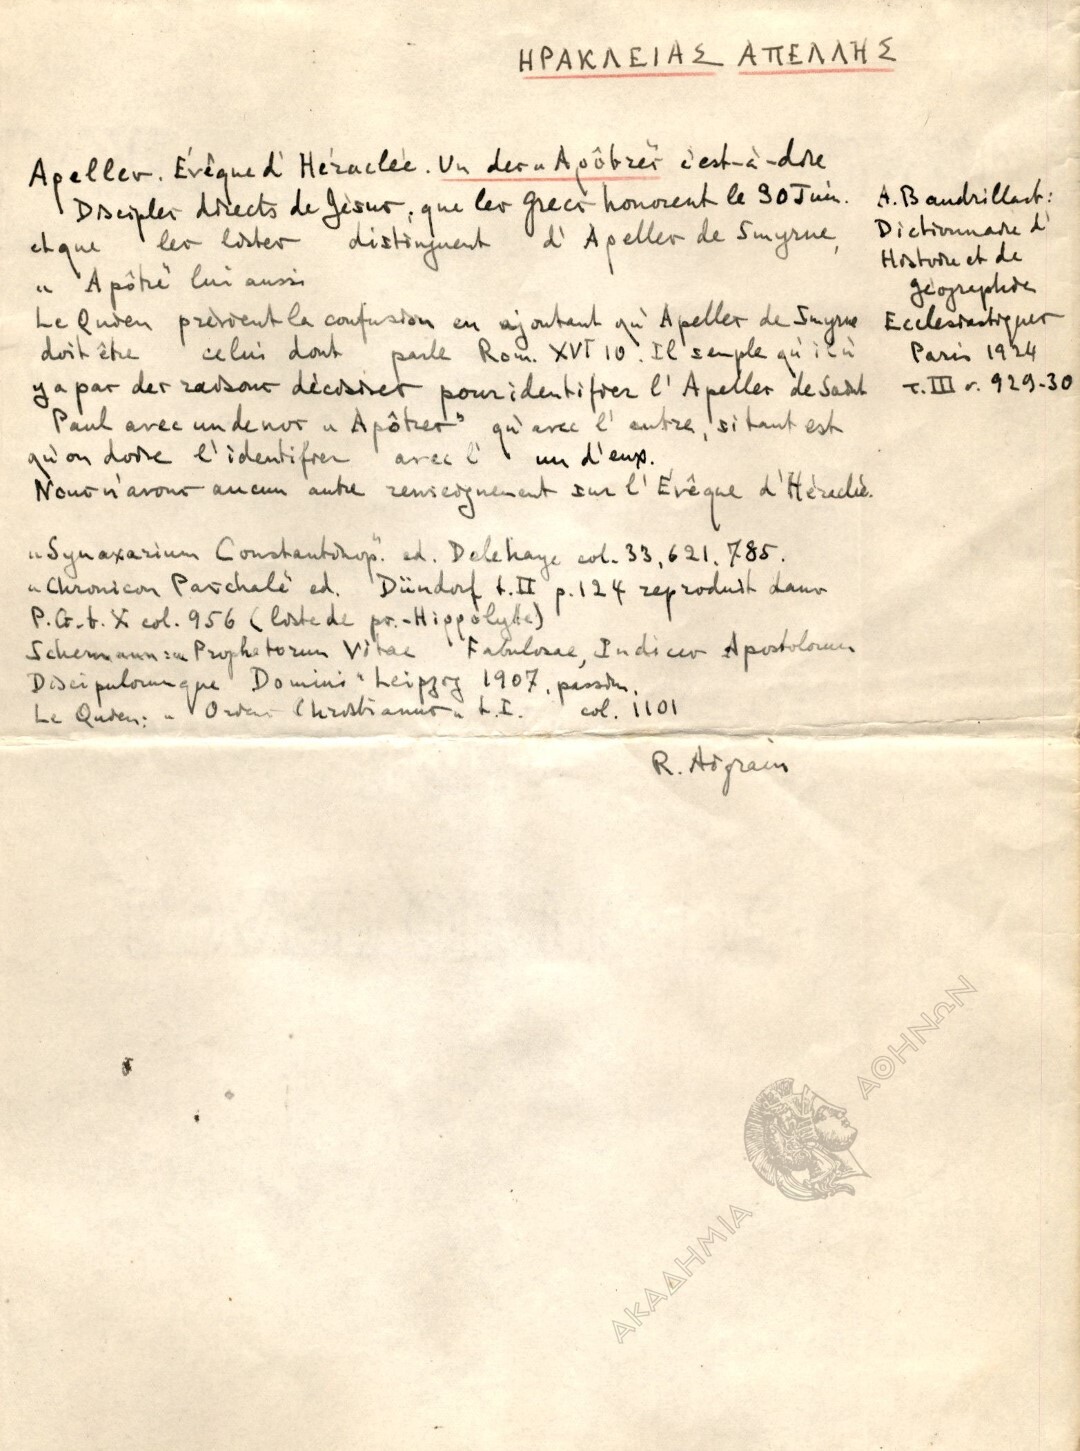 ΗΡΑΚΛΕΙΑΣ ΑΠΕΛΛΗΣ
Apelles. Évêque d'Héraclée. Un des "Apôtres" c'est-à-dire
Disciples directs de Jèsus, que les Grecs honorent le 30 Juin.
et que les listes distinguent d'Apelles de Smyrne,
" Apôtre" lui aussi
Le Quien prévient la confusion en ajoutant qu'Apelles de Smyrne
doit être celui dont parle Rom. XVI 10. Il semple qu'il n'
y a pas des raisons décisives pour identifier l'Apelles de Saint
Paul avec un de nos "Apôtres" qu'avec l'autre, si tant est
qu'on doive l'identifier avec l' un d'eux.
Nous n'avons aucun autre renseignement sur l'Évêque d'Héraclée.
A. Baudrillart:
Dictionnaire d'
Histoire et de
géographie
Ecclesiastiques
Paris 1924
τ. III σ. 929-30
"Synaxarium Constantinop". ed. Delehaye col. 33, 621, 785.
"Chronicon Paschale" ed. Dündorf t. II p. 124 reproduit dans
P.G. t. X col. 956 (liste de ps.-Hippolyte)
Schermann: "Prophetarum Vitae Fabulosae, Indices Apostolorum
Discipulorumque Domini" Leipzig 1907, passim.
Le Quien: " Oriens Christianus" t. I. col. 1101
R. Aigrain
ΑΚΑΔΗΜΙΑ ΑΘΗΝΩΝ